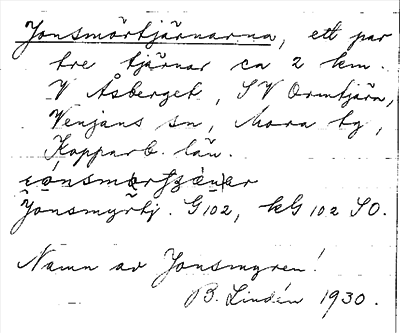 Jonsmörtjärnarna, ett par
tre tjärnar ca 2 km.
V Åsberget, SV Ormtjärn,
Venjans sn, Mora tg,
Kopparb. län.
Jonsmyrtj. G102, kG 102 SO.
Namn av Jonsmyren!
B. Lindén 1930.